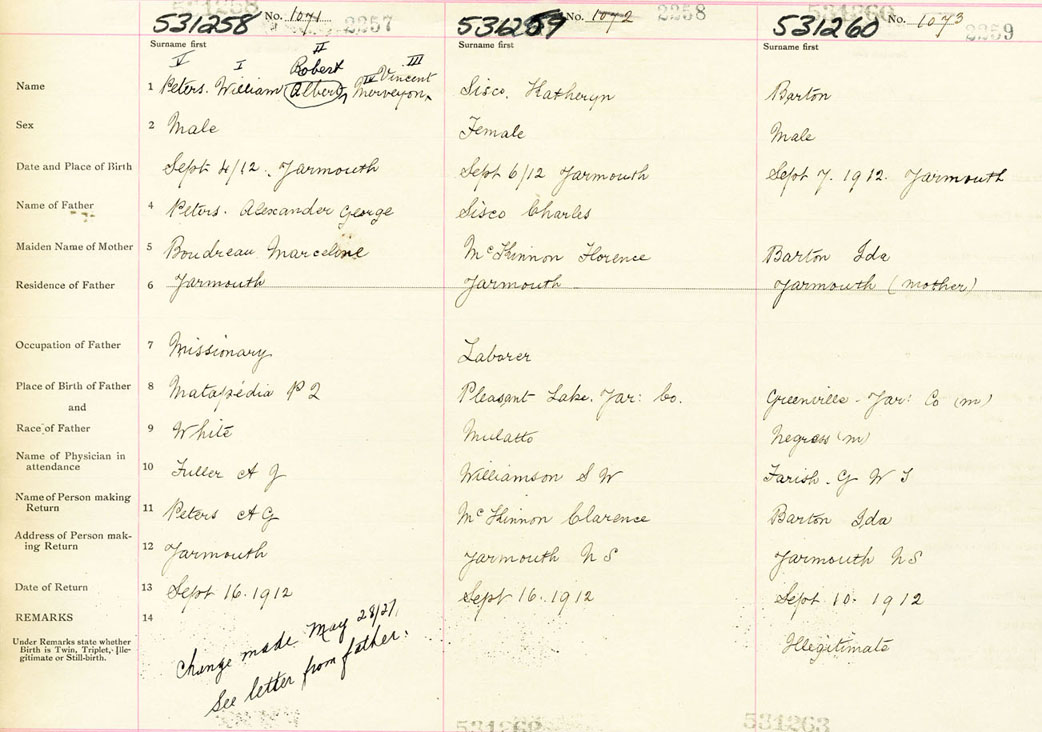 531258 No. 1071 2257 531259 No. 1072 2258 531260 No. 1073 2259
Surname first Surname first Surname first
V I II III
Robert IV Vincent
Name 1 Peters. William Albert, Sisco. Katheryn Barton
Sex 2 Male Female Male
Date and Place of Birth 3 Sept 4/12. Yarmouth Sept 6/12 Yarmouth Sept 7. 1912. Yarmouth
Name of Father 4 Peters. Alexander George Sisco Charles
Maiden Name of Mother 5 Boudreau Marceline McKinnon Florence Barton Ida
Residence of Father 6 Yarmouth Yarmouth Yarmouth (mother)
Occupation of Father 7 Missionary Laborer
Place of Birth of Father 8 Matapédia P Q Pleasant Lake. Yar: Co. Greenville - Yar: Co (m)
and
Race of Father 9 White Mulatto Negress (m)
Name of Physician in
attendance 10 Fuller A J Williamson S W Farish. G W T
Name of Person making
Return 11 Peters A G McKinnon Clarence Barton Ida
Address of Person mak-
ing Return 12 Yarmouth Yarmouth N S Yarmouth N S
Date of Return 13 Sept 16. 1912 Sept 16. 1912 Sept. 10. 1912
REMARKS 14
Under Remarks state whether
Birth is Twin, Triplet, Ille-
gitimate or Still-birth.
Change made May 28/27.
See letter from father.
Illegitimate
531263